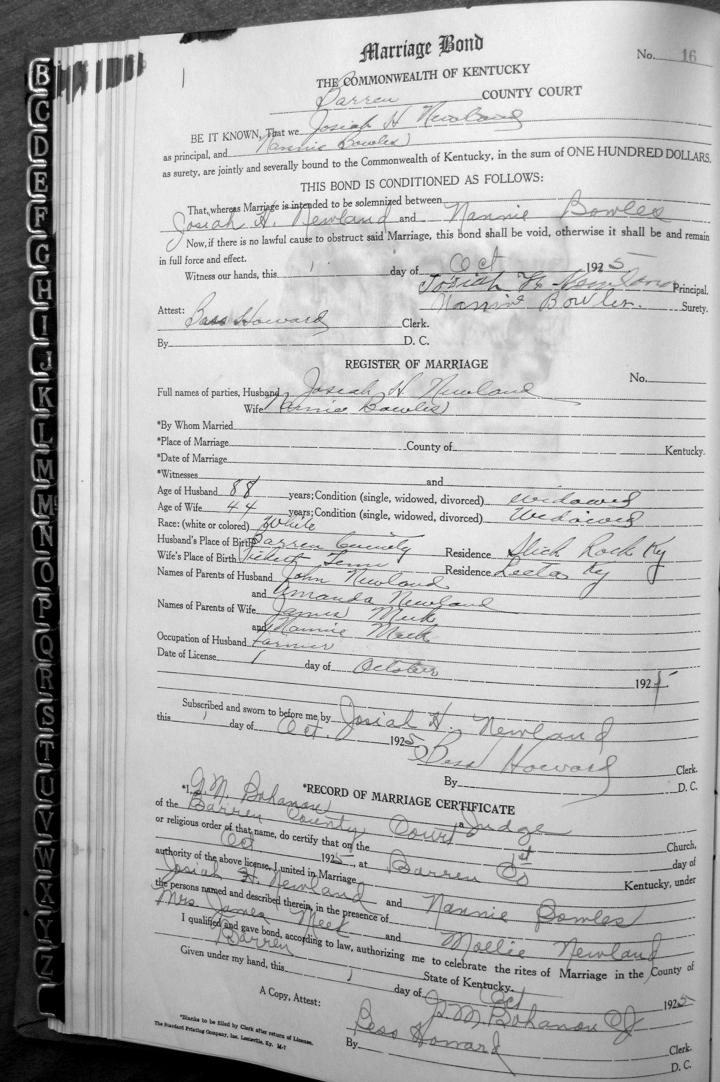 Marriage Bond
No. 16
THE COMMONWEALTH OF KENTUCKY
Barren COUNTY COURT
BE IT KNOWN, That we Josiah H Newland
as principal, and Nannie Bowles
as surety, are jointly and severally bound to the Commonwealth of Kentucky, in the sum of ONE HUNDRED DOLLARS.
THIS BOND IS CONDITIONED AS FOLLOWS:
That, whereas Marriage is intended to be solemnized between
Josiah H. Newland and Nannie Bowles
Now, if there is no lawful cause to obstruct said Marriage, this bond shall be void, otherwise it shall be and remain
in full force and effect.
Witness our hands, this 1 day of Oct 1925
Josiah H. Newland Principal.
Nannie Bowles. Surety.
Attest:
Bess Howard Clerk.
By D. C.
REGISTER OF MARRIAGE
No.
Full names of parties, Husband Josiah H Newland
Wife Nannie Bowles
*By Whom Married
*Place of Marriage County of Kentucky.
*Date of Marriage
*Witnesses and
Age of Husband 88 years; Condition (single, widowed, divorced) Widowed
Age of Wife 44 years; Condition (single, widowed, divorced) Widowed
Race: (white or colored) White
Husband's Place of Birth Barren County Residence Slick Rock Ky
Wife's Place of Birth Tenn Residence Ky
Names of Parents of Husband John Newland
and Amanda Newland
Names of Parents of Wife James
and Nannie
Occupation of Husband Farmer
Date of License 1 day of October 1925
Subscribed and sworn to before me by Josiah H. Newland
this 1 day of Oct. 1925
Bess Howard Clerk.
By D. C.
*RECORD OF MARRIAGE CERTIFICATE
*I, G. M. Bohanon
of the Barren County Court Judge Church,
or religious order of that name, do certify that on the 1st day of
Oct 1925, at Barren Co Kentucky, under
authority of the above license, I united in Marriage
Josiah H. Newland and Nannie Bowles
the persons named and described therein, in the presence of
Mrs. James Meek and Mollie Newland
I qualified and gave bond, according to law, authorizing me to celebrate the rites of Marriage in the County of
Barren State of Kentucky.
Given under my hand, this 1 day of Oct 1925
G. M. Bohanon CJ
A Copy, Attest:
Bess Howard Clerk.
By D. C.
*Blanks to be filled by Clerk after return of License.
The Standard Printing Company, Inc. Louisville, Ky. M-7
B
C
D
E
F
G
H
I
J
K
L
M
M
N
O
P
Q
R
S
T
U
V
W
X
Y
Z